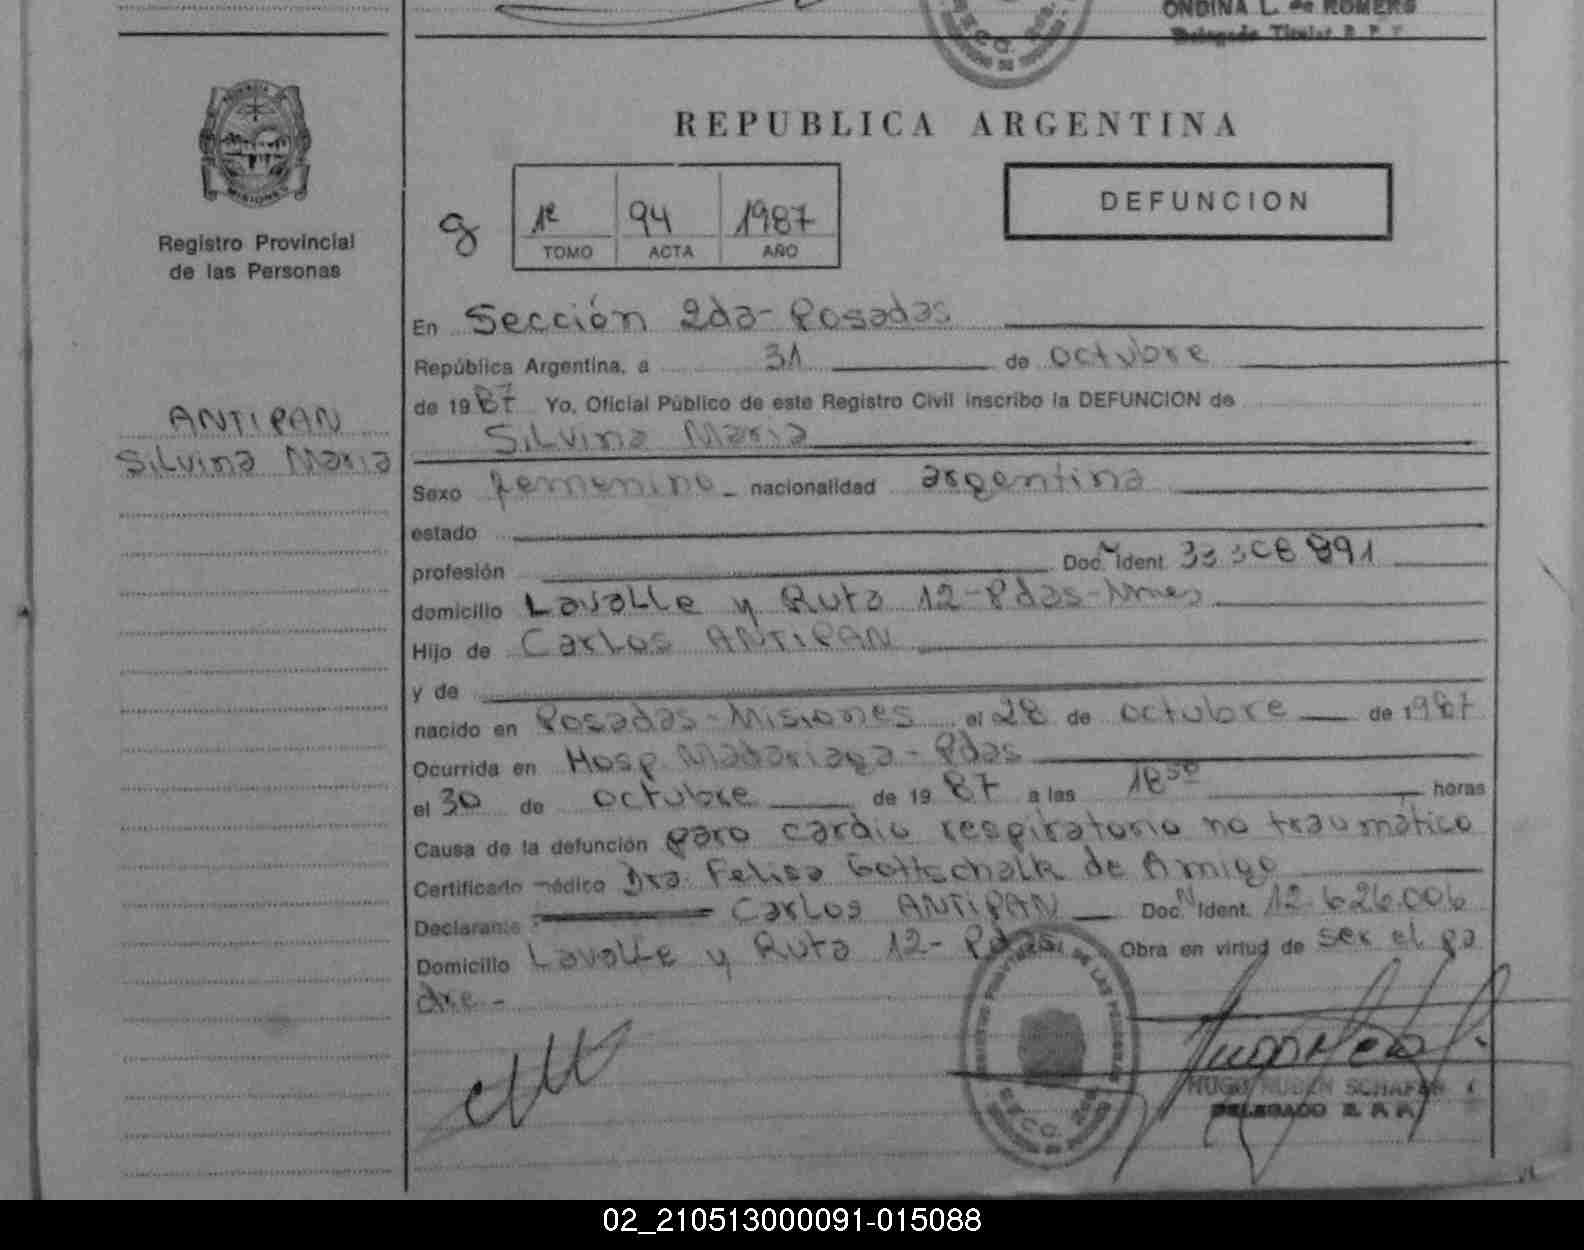 ONDINA L. de ROMERO
Delegado Titular R. P. P.
REPUBLICA ARGENTINA
PROVINCIA
MISIONES
Registro Provincial
de las Personas
g
1º 94 1987
TOMO ACTA AÑO
DEFUNCION
ANTIPAN
Silvina Maria
En Sección 2da- Posadas
República Argentina, a 31 de octubre
de 1987 Yo, Oficial Público de este Registro Civil inscribo la DEFUNCION de
Silvina Maria
Sexo femenino nacionalidad argentina
estado
profesión Doc. Ident. 33
domicilio Lavalle y Ruta 12-Pdas-Mnes
Hijo de Carlos ANTIPAN
y de
nacido en Posadas-Misiones el 28 de octubre de 1987
Ocurrida en Hosp. Madariaga - Pdas
el 30 de octubre de 1987 a las 18 50 horas
Causa de la defunción paro cardio respiratorio no traumático
Certificado médico Dra. Felisa Gottschalk de Amigo
Declarante Carlos ANTIPAN Doc. N Ident. 12.626.006
Domicilio Lavalle y Ruta 12- Pdas. Obra en virtud de ser el pa
dre -
REGISTRO PROVINCIAL DE LAS PERSONAS
SECC. 2da.
HUGO RUBEN SCHAFER
DELEGADO R. P. P.
02_210513000091-015088